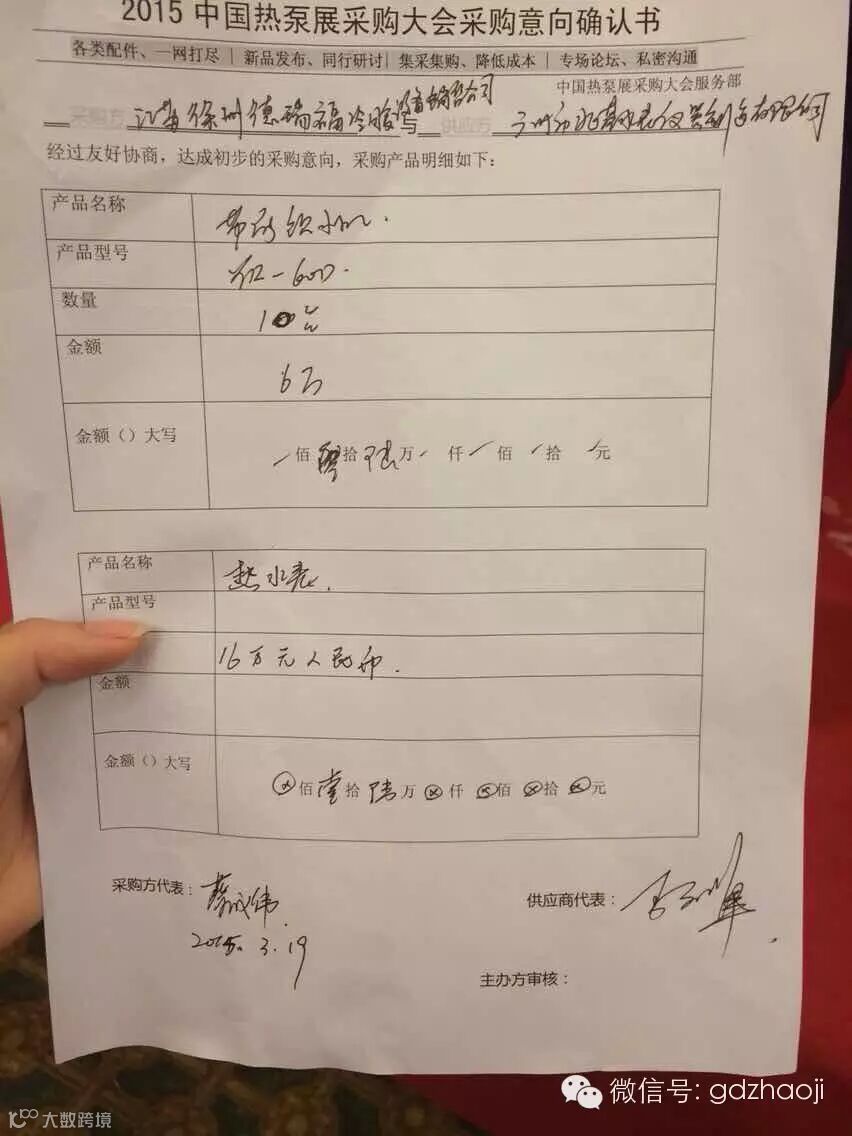 2015 中国热泵展采购大会采购意向确认书
各类配件、一网打尽 | 新品发布、同行研讨 | 集采集购、降低成本 | 专场论坛、私密沟通
中国热泵展采购大会服务部
采购方 江苏徐州德瑞福冷暖设备销售公司 与 供应方 广州市兆基水表仪器制造有限公司
经过友好协商，达成初步的采购意向，采购产品明细如下：
产品名称
产品型号 -600.
数量 10台
金额 6万
金额（）大写 佰 拾 陆万 仟 佰 拾 元
产品名称 热水表.
产品型号
16万元人民币.
金额
金额（）大写 ⊗佰 壹拾 陆万 ⊗仟 ⊗佰 ⊗拾 ⊗元
采购方代表： 供应商代表：
2015.3.19
主办方审核：
微信号: gdzhaoji
大数跨境